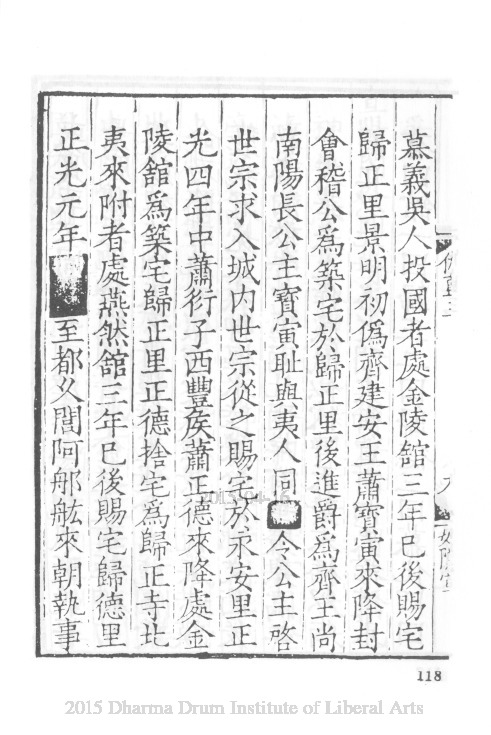 慕義吳人投國者處金陵館三年已後賜宅
歸正里景明初僞齊建安王蕭寶寅來降封
會稽公爲築宅於歸正里後進爵爲齊王尚
南陽長公主寶寅耻與夷人同令公主啓
世宗求入城内世宗從之賜宅於永安里正
光四年中蕭衍子西豐侯蕭正德來降處金
陵館爲築宅歸正里正德捨宅爲歸正寺北
夷來附者處燕然館三年已後賜宅歸德里
正光元年至都久閭阿郍肱來朝執事
118
2015 Dharma Drum Institute of Liberal Arts